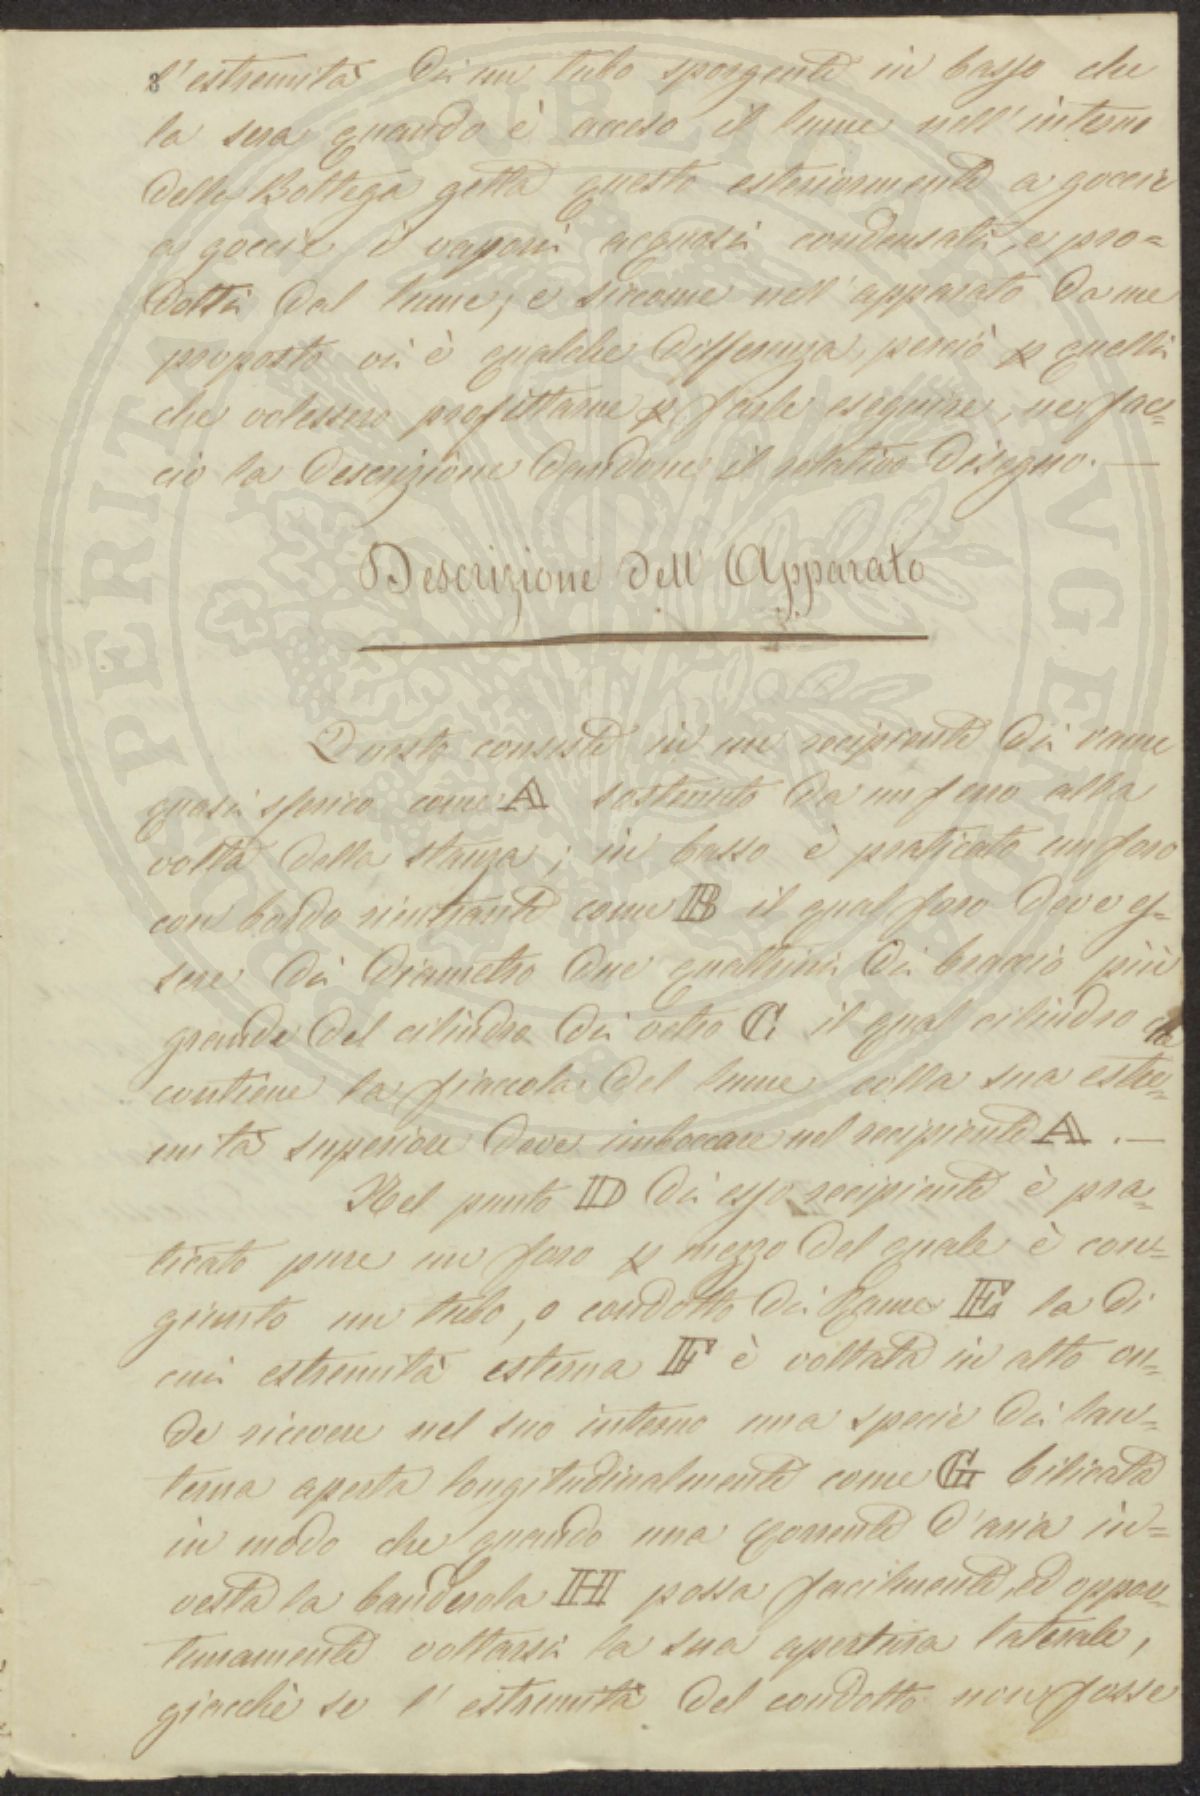 l'estremità di un tubo sporgente in basso che
la sera quando è acceso il lume nell'interno
della Bottega getta questo esteriormente a goccie
a goccie i vapori acquosi condensati, e pro=
dotti dal lume; e siccome nell'apparato da me
proposto vi è qualche differenza, perciò p quelli
che volessero profittarne p farlo eseguire, ne fac=
cio la descrizione dandone il relativo disegno.—
Descrizione dell'Apparato
Questo consiste in un recipiente di rame
quasi sferico come A sostenuto da un ferro alla
volta della stanza; in basso è praticato un foro
con bordo rientrante come B il qual foro deve es=
sere di diametro due quattrini di braccio più
grande del cilindro di vetro C il qual cilindro che
contiene la fiaccola del lume colla sua estre=
mità superiore deve imboccare nel recipiente A.—
Nel punto D di esso recipiente è pra=
ticato pure un foro p mezzo del quale è con=
giunto un tubo, o condotto di Rame E la di
cui estremità esterna F è voltata in alto on=
de ricevere nel suo interno una specie di lan=
terna aperta longitudinalmente come G bilicata
in modo che quando una corrente d'aria in=
vesta la banderola H possa facilmente, ed oppor=
tunamente voltarsi la sua apertura laterale,
giacchè se l'estremità del condotto non fosse
PROSPERITATI PUBLICAE AUGENDAE